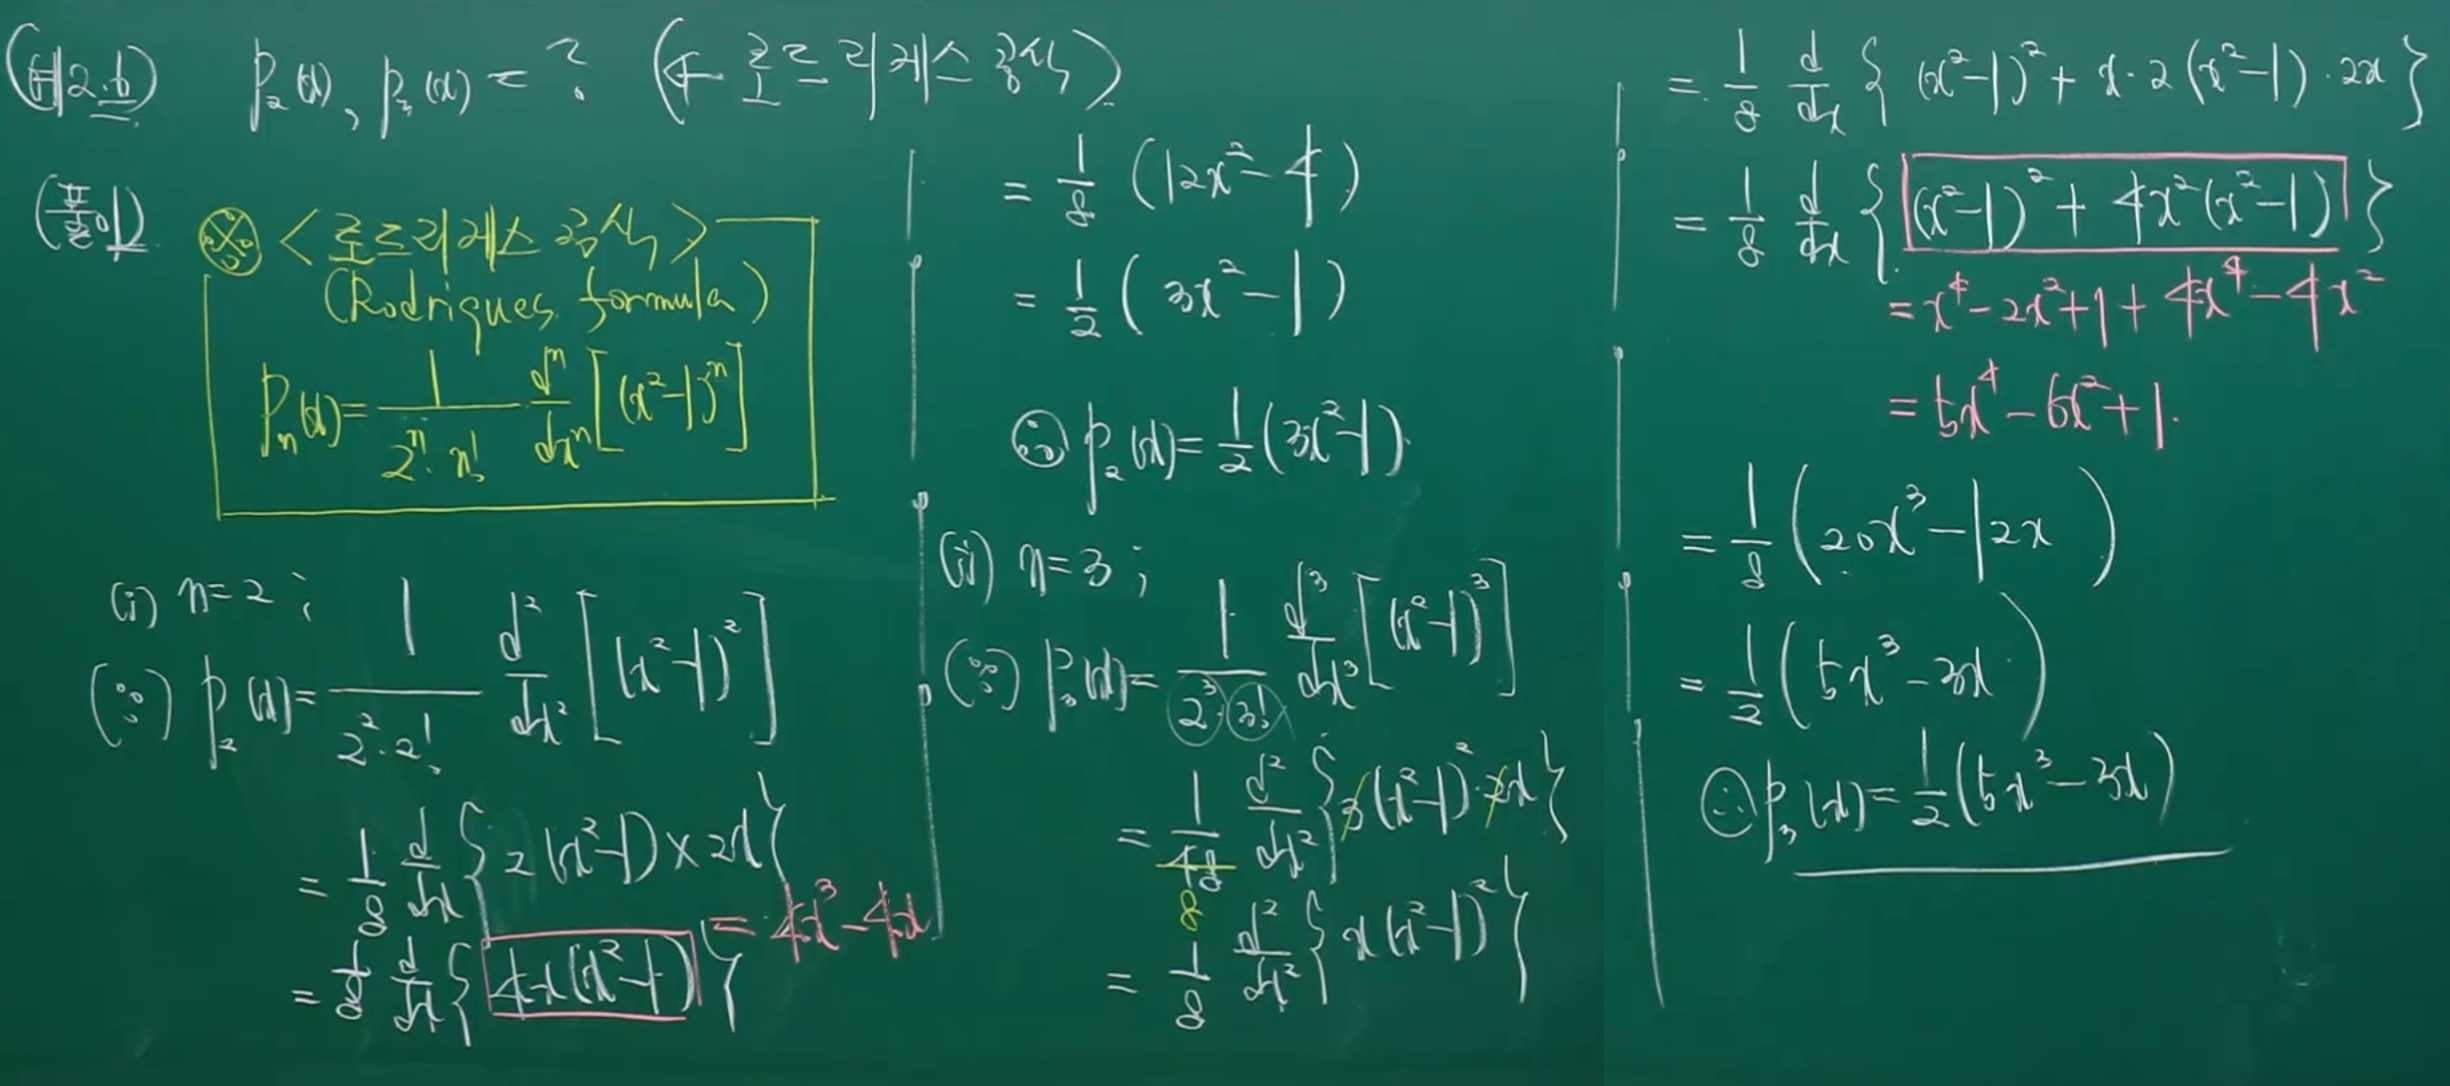 (예2.6) P₂(x), P₃(x) = ? (← 로드리게스 공식)
(풀이)
※ <로드리게스 공식>
(Rodrigues formula)
Pₙ(x) = 1/(2ⁿ·n!) dⁿ/dxⁿ [(x²-1)ⁿ]
(i) n=2 ;
(∵) P₂(x) = 1/(2²·2!) d²/dx² [(x²-1)²]
= 1/8 d/dx {2(x²-1)×2x}
= 1/8 d/dx {4x(x²-1)} = 4x³-4x
= 1/8 (12x²-4)
= 1/2 (3x²-1)
∴ P₂(x) = 1/2 (3x²-1).
(ii) n=3 ;
(∵) P₃(x) = 1/(2³·3!) d³/dx³ [(x²-1)³]
= 1/48 d²/dx² {3(x²-1)²·2x}
8
= 1/8 d²/dx² {x(x²-1)²}
= 1/8 d/dx {(x²-1)² + x·2(x²-1)·2x}
= 1/8 d/dx {(x²-1)² + 4x²(x²-1)}
= x⁴-2x²+1+4x⁴-4x²
= 5x⁴-6x²+1.
= 1/8 (20x³-12x)
= 1/2 (5x³-3x)
∴ P₃(x) = 1/2 (5x³-3x)